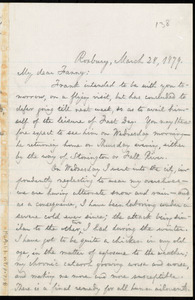 Roxbury, March 28, 1879.
My dear Fanny:
Frank intended to be with you to-
morrow, on a flying visit, but has concluded to
defer going till next week, so as to avail him-
self of the leisure of Fast Day. You may there-
fore expect to see him on Wednesday morning
he returning home on Thursday evening, either
by the way of Stonington or Fall River.
On Wednesday I went into the city, im-
prudently neglecting to wear my
we are having alternate snow and rain—and as
a consequence, I have been laboring under a
severe cold ever since; the attack being sim-
ilar to the one I had during the winter.
I have got to be quite a chicken in my old
age, in the matter of exposure to the weather,
my chronic catarrh growing worse and worse,
and making me more and more susceptible.
There is a final cessation, for all human ailments